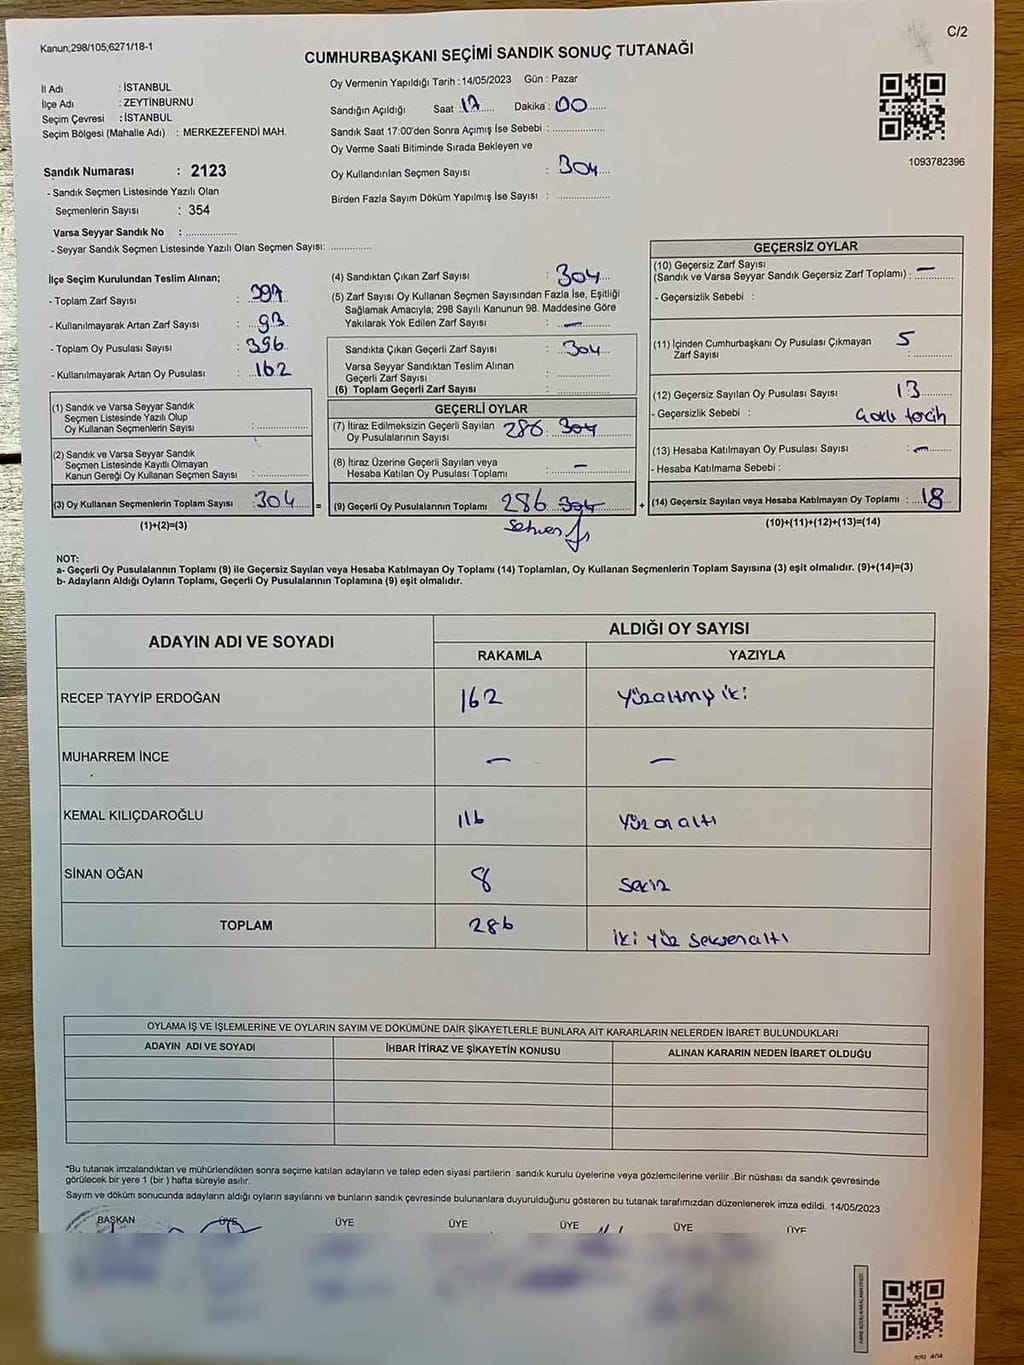 Kanun,298/105,6271/18-1
C/2
CUMHURBAŞKANI SEÇİMİ SANDIK SONUÇ TUTANAĞI
İl Adı : İSTANBUL
İlçe Adı : ZEYTİNBURNU
Seçim Çevresi : İSTANBUL
Seçim Bölgesi (Mahalle Adı) : MERKEZEFENDİ MAH.
Sandık Numarası : 2123
- Sandık Seçmen Listesinde Yazılı Olan
Seçmenlerin Sayısı : 354
Varsa Seyyar Sandık No : ..................
- Seyyar Sandık Seçmen Listesinde Yazılı Olan Seçmen Sayısı: ..............
Oy Vermenin Yapıldığı Tarih : 14/05/2023 Gün : Pazar
Sandığın Açıldığı Saat : 17 Dakika : 00
Sandık Saat 17:00'den Sonra Açımış İse Sebebi : ..................
Oy Verme Saati Bitiminde Sırada Bekleyen ve
Oy Kullandırılan Seçmen Sayısı : 304
Birden Fazla Sayım Döküm Yapılmış İse Sayısı : ..................
1093782396
İlçe Seçim Kurulundan Teslim Alınan;
- Toplam Zarf Sayısı : 397
- Kullanılmayarak Artan Zarf Sayısı : 93
- Toplam Oy Pusulası Sayısı : 396
- Kullanılmayarak Artan Oy Pusulası : 162
(1) Sandık ve Varsa Seyyar Sandık
Seçmen Listesinde Yazılı Olup
Oy Kullanan Seçmenlerin Sayısı : ..................
(2) Sandık ve Varsa Seyyar Sandık
Seçmen Listesinde Kayıtlı Olmayan
Kanun Gereği Oy Kullanan Seçmen Sayısı : ..................
(3) Oy Kullanan Seçmenlerin Toplam Sayısı : 304 =
(1)+(2)=(3)
(4) Sandıktan Çıkan Zarf Sayısı : 304
(5) Zarf Sayısı Oy Kullanan Seçmen Sayısından Fazla İse, Eşitliği
Sağlamak Amacıyla; 298 Sayılı Kanunun 98. Maddesine Göre
Yakılarak Yok Edilen Zarf Sayısı : —
Sandıkta Çıkan Geçerli Zarf Sayısı : 304
Varsa Seyyar Sandıktan Teslim Alınan
Geçerli Zarf Sayısı : ..................
(6) Toplam Geçerli Zarf Sayısı : ..................
GEÇERLİ OYLAR
(7) İtiraz Edilmeksizin Geçerli Sayılan
Oy Pusulalarının Sayısı 286 : 304
(8) İtiraz Üzerine Geçerli Sayılan veya
Hesaba Katılan Oy Pusulası Toplamı : —
(9) Geçerli Oy Pusulalarının Toplamı 286 : 304 +
Sehven
GEÇERSİZ OYLAR
(10) Geçersiz Zarf Sayısı
(Sandık ve Varsa Seyyar Sandık Geçersiz Zarf Toplamı) : —
- Geçersizlik Sebebi :
(11) İçinden Cumhurbaşkanı Oy Pusulası Çıkmayan 5
Zarf Sayısı : ..............
(12) Geçersiz Sayılan Oy Pusulası Sayısı : 13
- Geçersizlik Sebebi : Çoklu tercih
(13) Hesaba Katılmayan Oy Pusulası Sayısı : —
- Hesaba Katılmama Sebebi :
(14) Geçersiz Sayılan veya Hesaba Katılmayan Oy Toplamı : 18
(10)+(11)+(12)+(13)=(14)
NOT:
a- Geçerli Oy Pusulalarının Toplamı (9) ile Geçersiz Sayılan veya Hesaba Katılmayan Oy Toplamı (14) Toplamları, Oy Kullanan Seçmenlerin Toplam Sayısına (3) eşit olmalıdır. (9)+(14)=(3)
b- Adayların Aldığı Oyların Toplamı, Geçerli Oy Pusulalarının Toplamına (9) eşit olmalıdır.
ADAYIN ADI VE SOYADI ALDIĞI OY SAYISI
RAKAMLA YAZIYLA
RECEP TAYYİP ERDOĞAN 162 Yüzaltmış iki
MUHARREM İNCE — —
KEMAL KILIÇDAROĞLU 116 Yüz on altı
SİNAN OĞAN 8 Sekiz
TOPLAM 286 İki yüz seksen altı
OYLAMA İŞ VE İŞLEMLERİNE VE OYLARIN SAYIM VE DÖKÜMÜNE DAİR ŞİKAYETLERLE BUNLARA AİT KARARLARIN NELERDEN İBARET BULUNDUKLARI
ADAYIN ADI VE SOYADI İHBAR İTİRAZ VE ŞİKAYETİN KONUSU ALINAN KARARIN NEDEN İBARET OLDUĞU
*Bu tutanak imzalandıktan ve mühürlendikten sonra seçime katılan adayların ve talep eden siyasi partilerin sandık kurulu üyelerine veya gözlemcilerine verilir .Bir nüshası da sandık çevresinde
görülecek bir yere 1 (bir ) hafta süreyle asılır.
Sayım ve döküm sonucunda adayların aldığı oyların sayılarını ve bunların sandık çevresinde bulunanlara duyurulduğunu gösteren bu tutanak tarafımızdan düzenlenerek imza edildi. 14/05/2023
BAŞKAN ÜYE ÜYE ÜYE ÜYE ÜYE ÜYE